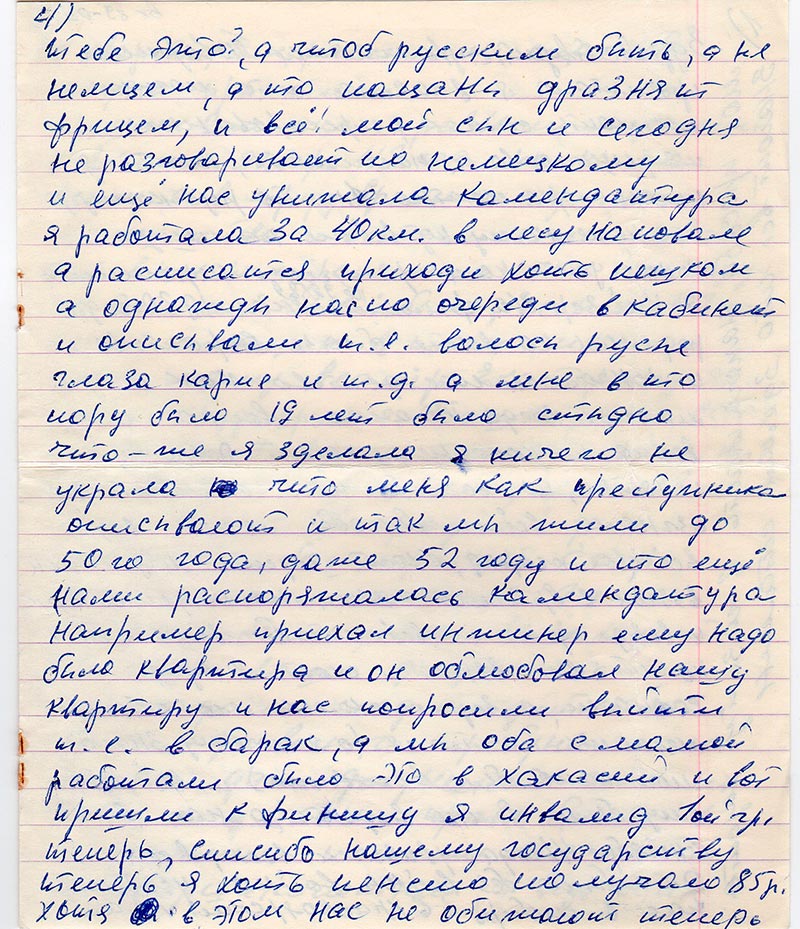 4)
тебе это?, а чтоб русским быть, а не
немцем, а то пацаны дразнят
фрицем, и всё! мой сын и сегодня
не разговаривает по немецкому
и ещё нас унижала камендактура
я работала за 40 км. в лесу на повале
а расписатся приходи хоть пешком
а однажды нас по очереди в кабинет
и описывали т.е. волосы русые
глаза карие и т.д. а мне в то
пору было 19 лет было стыдно
что-же я зделала я ничего не
украла что меня как преступника
описывают и так мы жили до
50 го года, даже 52 году и то ещё
нами распоряжалась камендактура
например приехал инжинер ему надо
было квартира и он облюбовал нашу
квартиру и нас попросили выйти
т.е. в барак, а мы оба с мамой
работали было это в хакасий и вот
пришли к финишу я инвалид 1ой гр.
теперь, списибо нашему государству
теперь я хоть пенсию получаю 85 р.
хотя в этом нас не обижают теперь